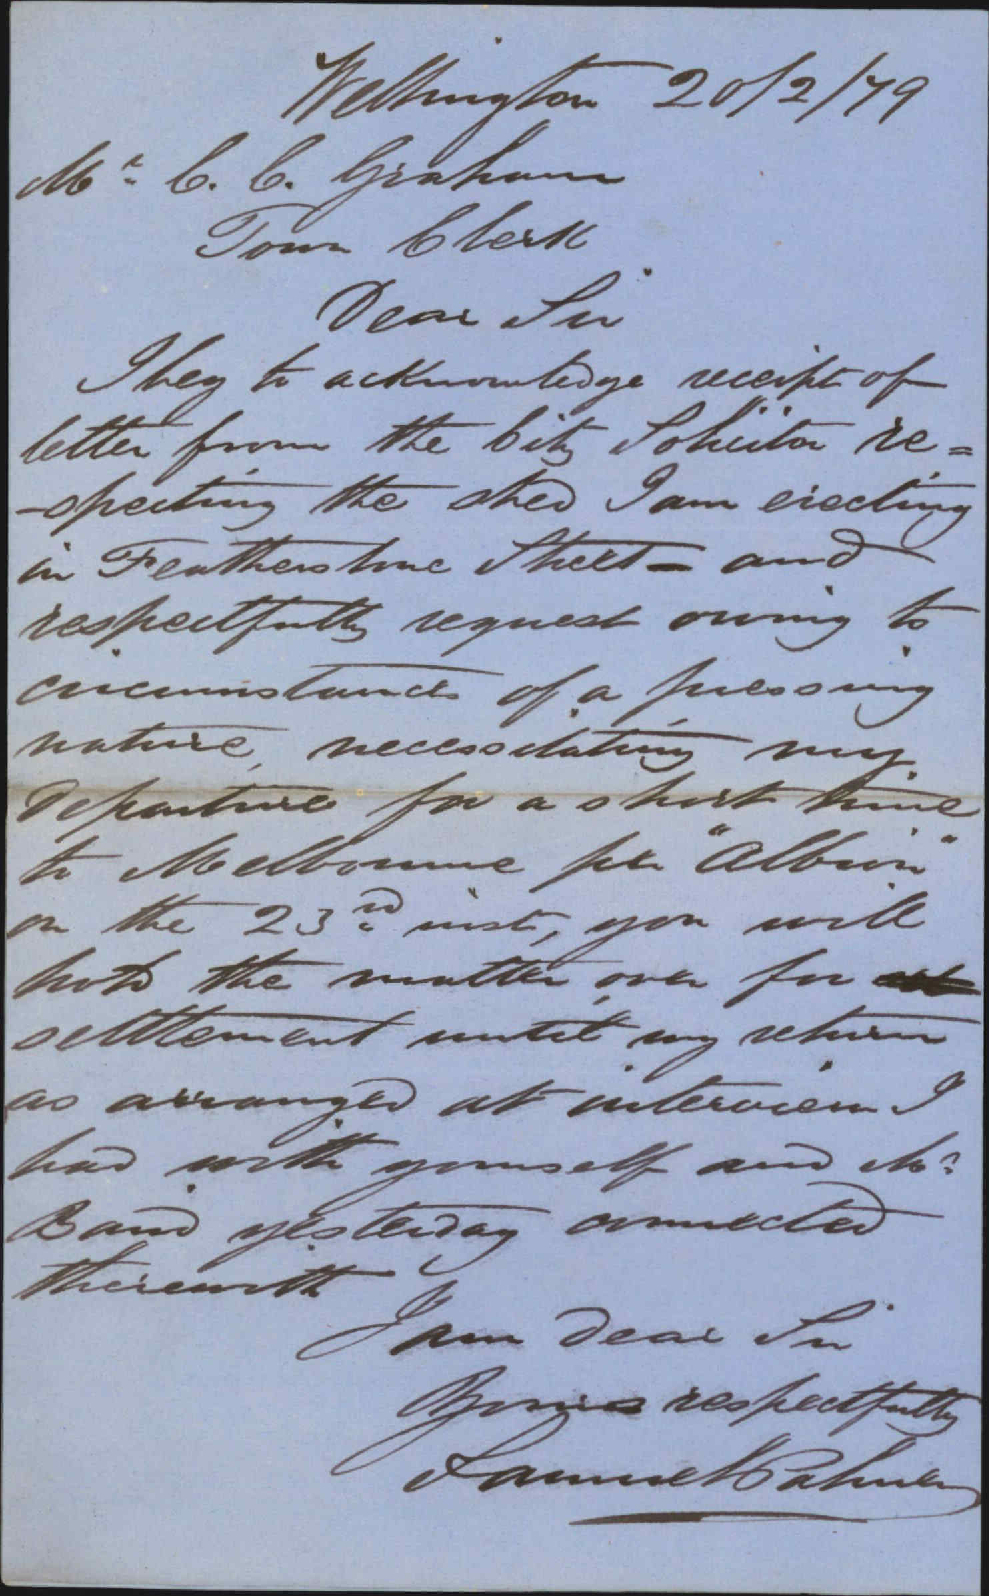 Wellington 20/2/79
Mr. C. C. Graham
Town Clerk
Dear Sir
I beg to acknowledge receipt of
letter from the City Solicitor re=
-specting the shed I am erecting
in Featherstone Street = and
respectfully request owing to
circumstances of a pressing
nature, necessitating my
departure for a short time
to Melbourne per "Albion"
on the 23rd inst, you will
hold the matter over for
settlement until my return
as arranged at interview I
had with yourself and Mr
Baird yesterday connected
therewith
I am Dear Sir
Yours respectfully
Samuel Palmer